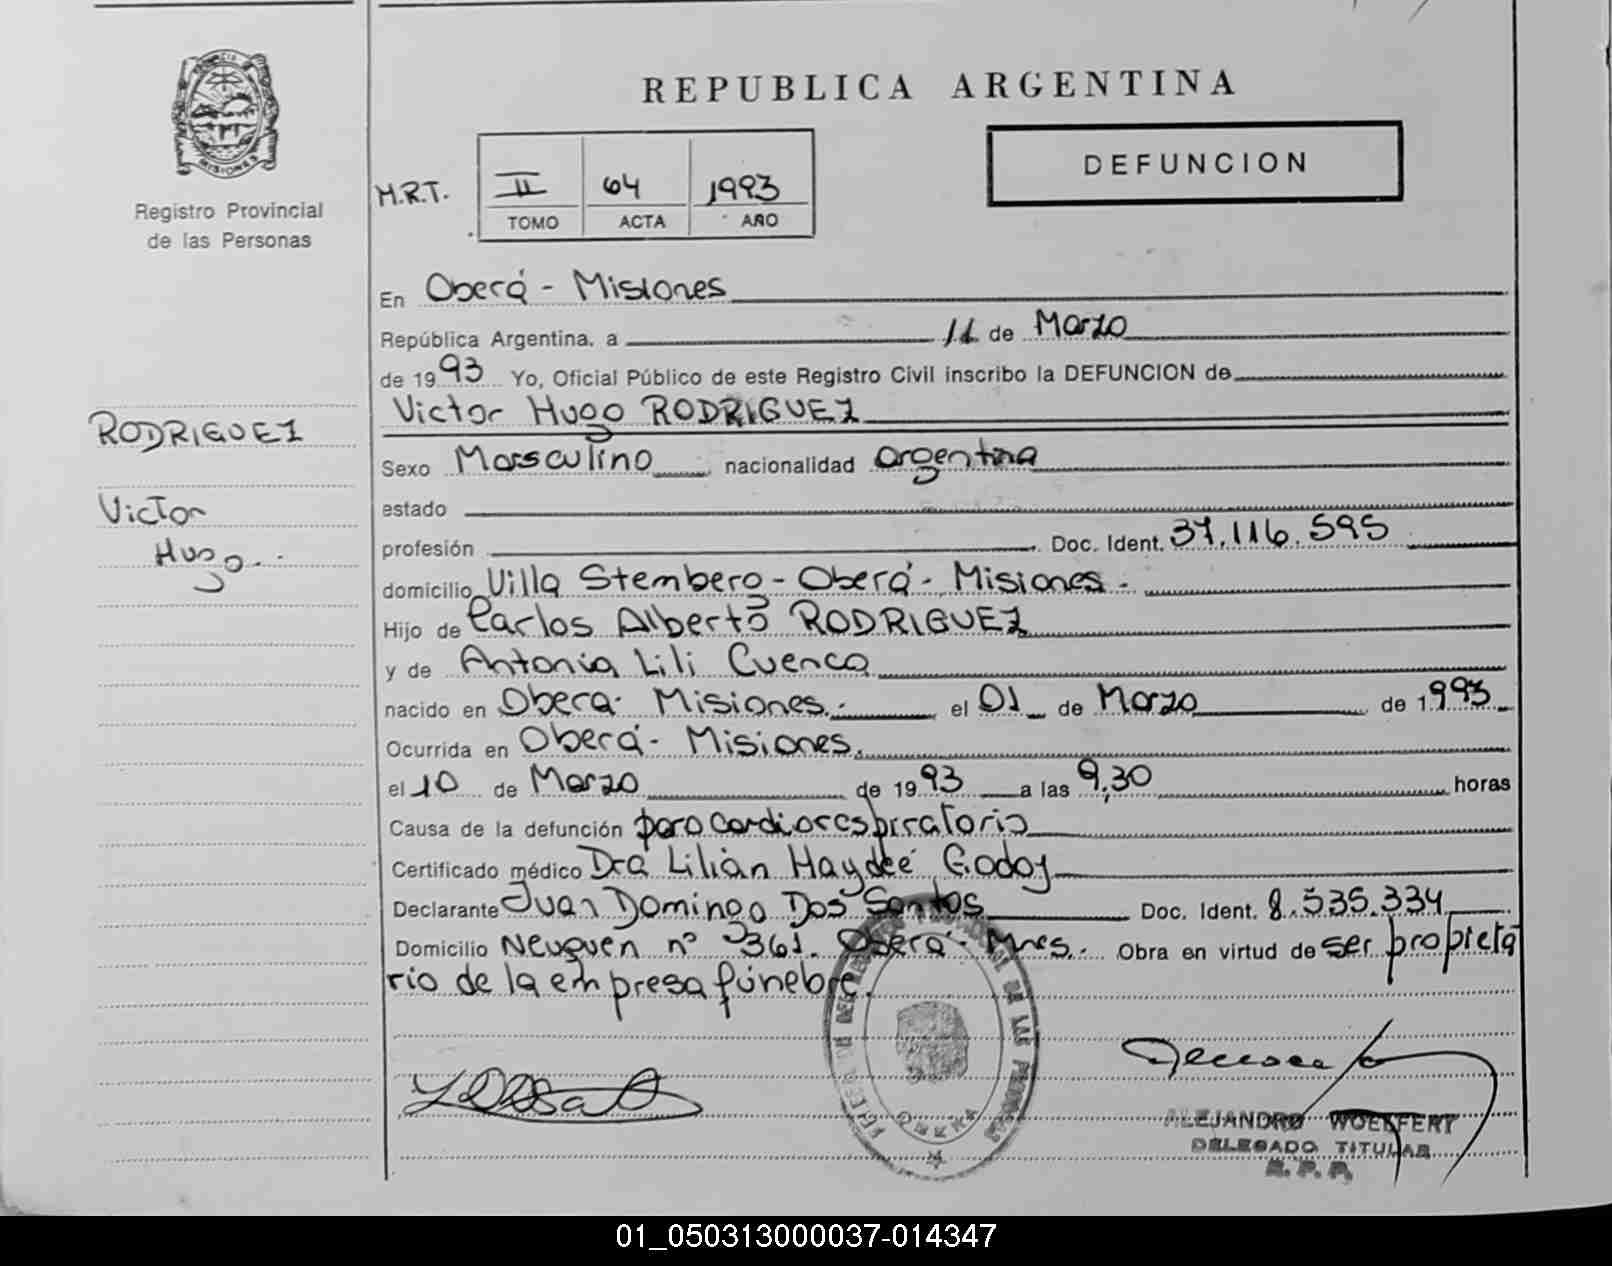 REPUBLICA ARGENTINA
PROVINCIA DE MISIONES
Registro Provincial
de las Personas
M.R.T.
II 64 1993
TOMO ACTA AÑO
DEFUNCION
RODRIGUEZ
Victor
Hugo.
En Oberá - Misiones
República Argentina, a 11 de Marzo
de 1993 Yo, Oficial Público de este Registro Civil inscribo la DEFUNCION de
Victor Hugo RODRIGUEZ
Sexo Masculino nacionalidad argentina
estado
profesión Doc. Ident. 37.116.595
domicilio Villa Stemberg - Oberá - Misiones -
Hijo de Carlos Alberto RODRIGUEZ
y de Antonia Lili Cuenca
nacido en Obera - Misiones.- el 01 de Marzo de 1993
Ocurrida en Oberá - Misiones.
el 10 de Marzo de 1993 a las 9,30 horas
Causa de la defunción paro cardiorespiratorio
Certificado médico Dra Lilian Haydeé Godoy
Declarante Juan Domingo Dos Santos Doc. Ident. 8.535.334
Domicilio Neuquen nº 361. Oberá - Mnes.- Obra en virtud de ser propieta
rio de la empresa fúnebre.
DE LAS PERSONAS
OBERA
ALEJANDRO WOELFERT
DELEGADO TITULAR
R. P. P.
01_050313000037-014347